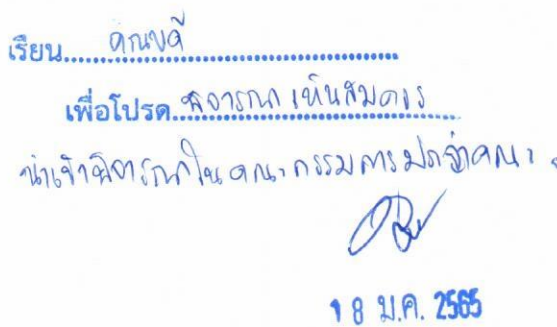 เรียน คณบดี
เพื่อโปรด พิจารณา เห็นสมควร
นำเข้าพิจารณาในคณะกรรมการประจำคณะ
18 ม.ค. 2565